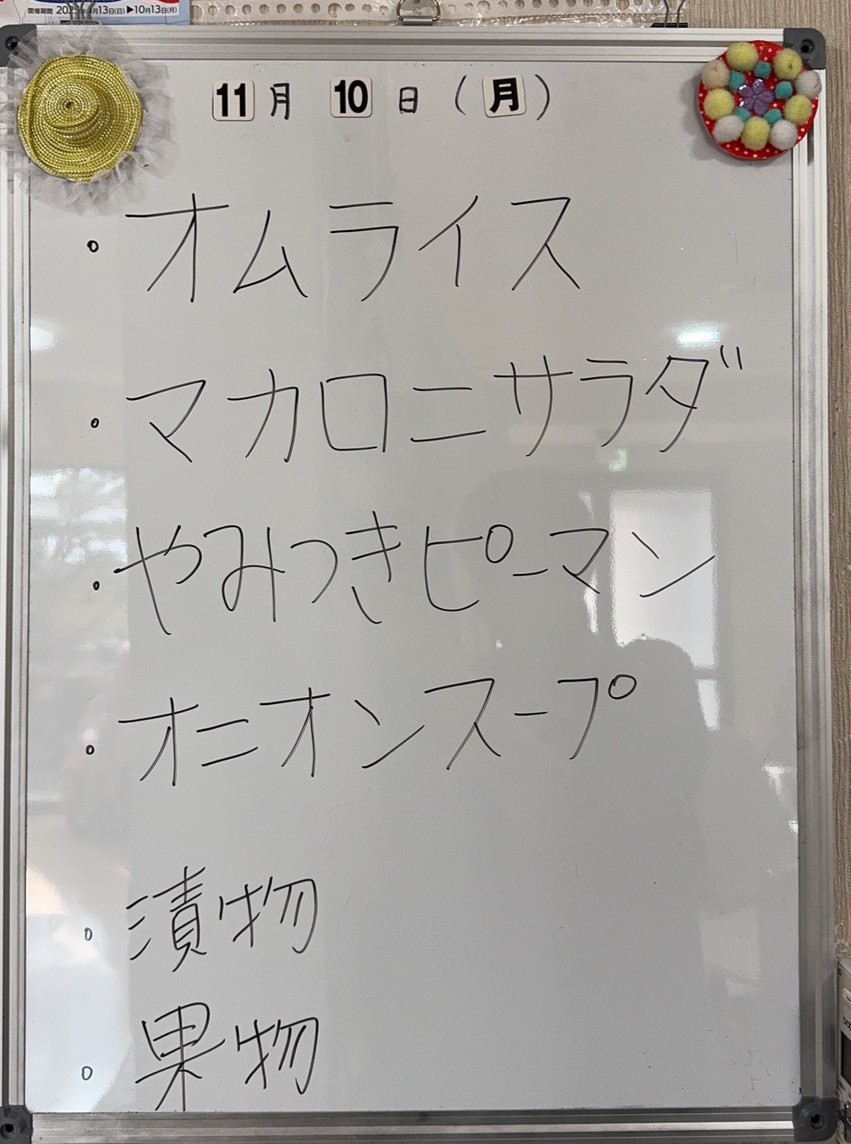 2025年4月13日(日)▶10月13日(月)
11月 10日(月)
・オムライス
・マカロニサラダ
・やみつきピーマン
・オニオンスープ
・漬物
・果物